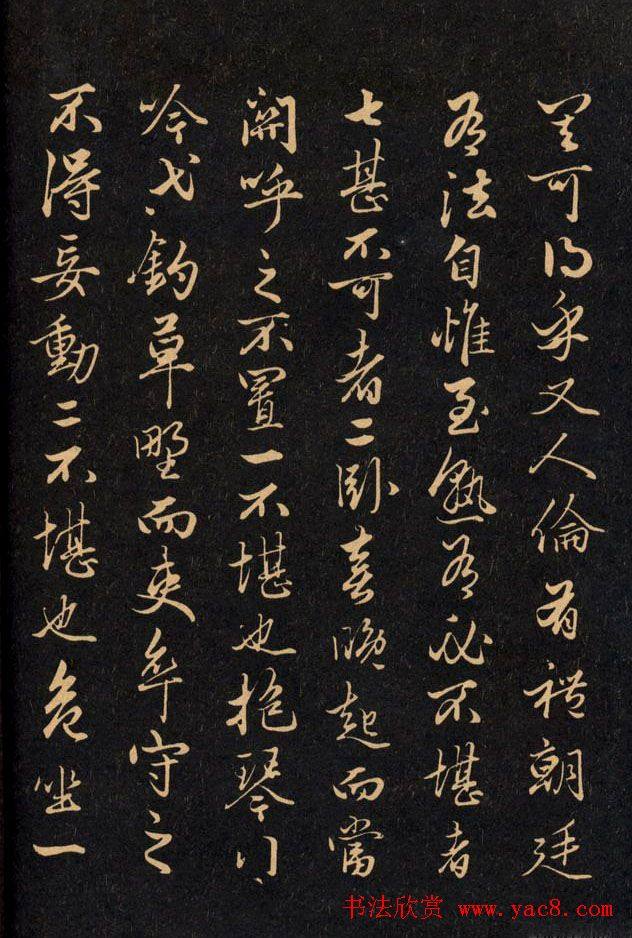 其可得乎又人倫有禮朝廷
有法自惟至熟有必不堪者
七甚不可者二卧喜晚起而當
關呼之不置一不堪也抱琴行
吟弋釣草野而吏卒守之
不得妄動二不堪也危坐一
书法欣赏 www.yac8.com